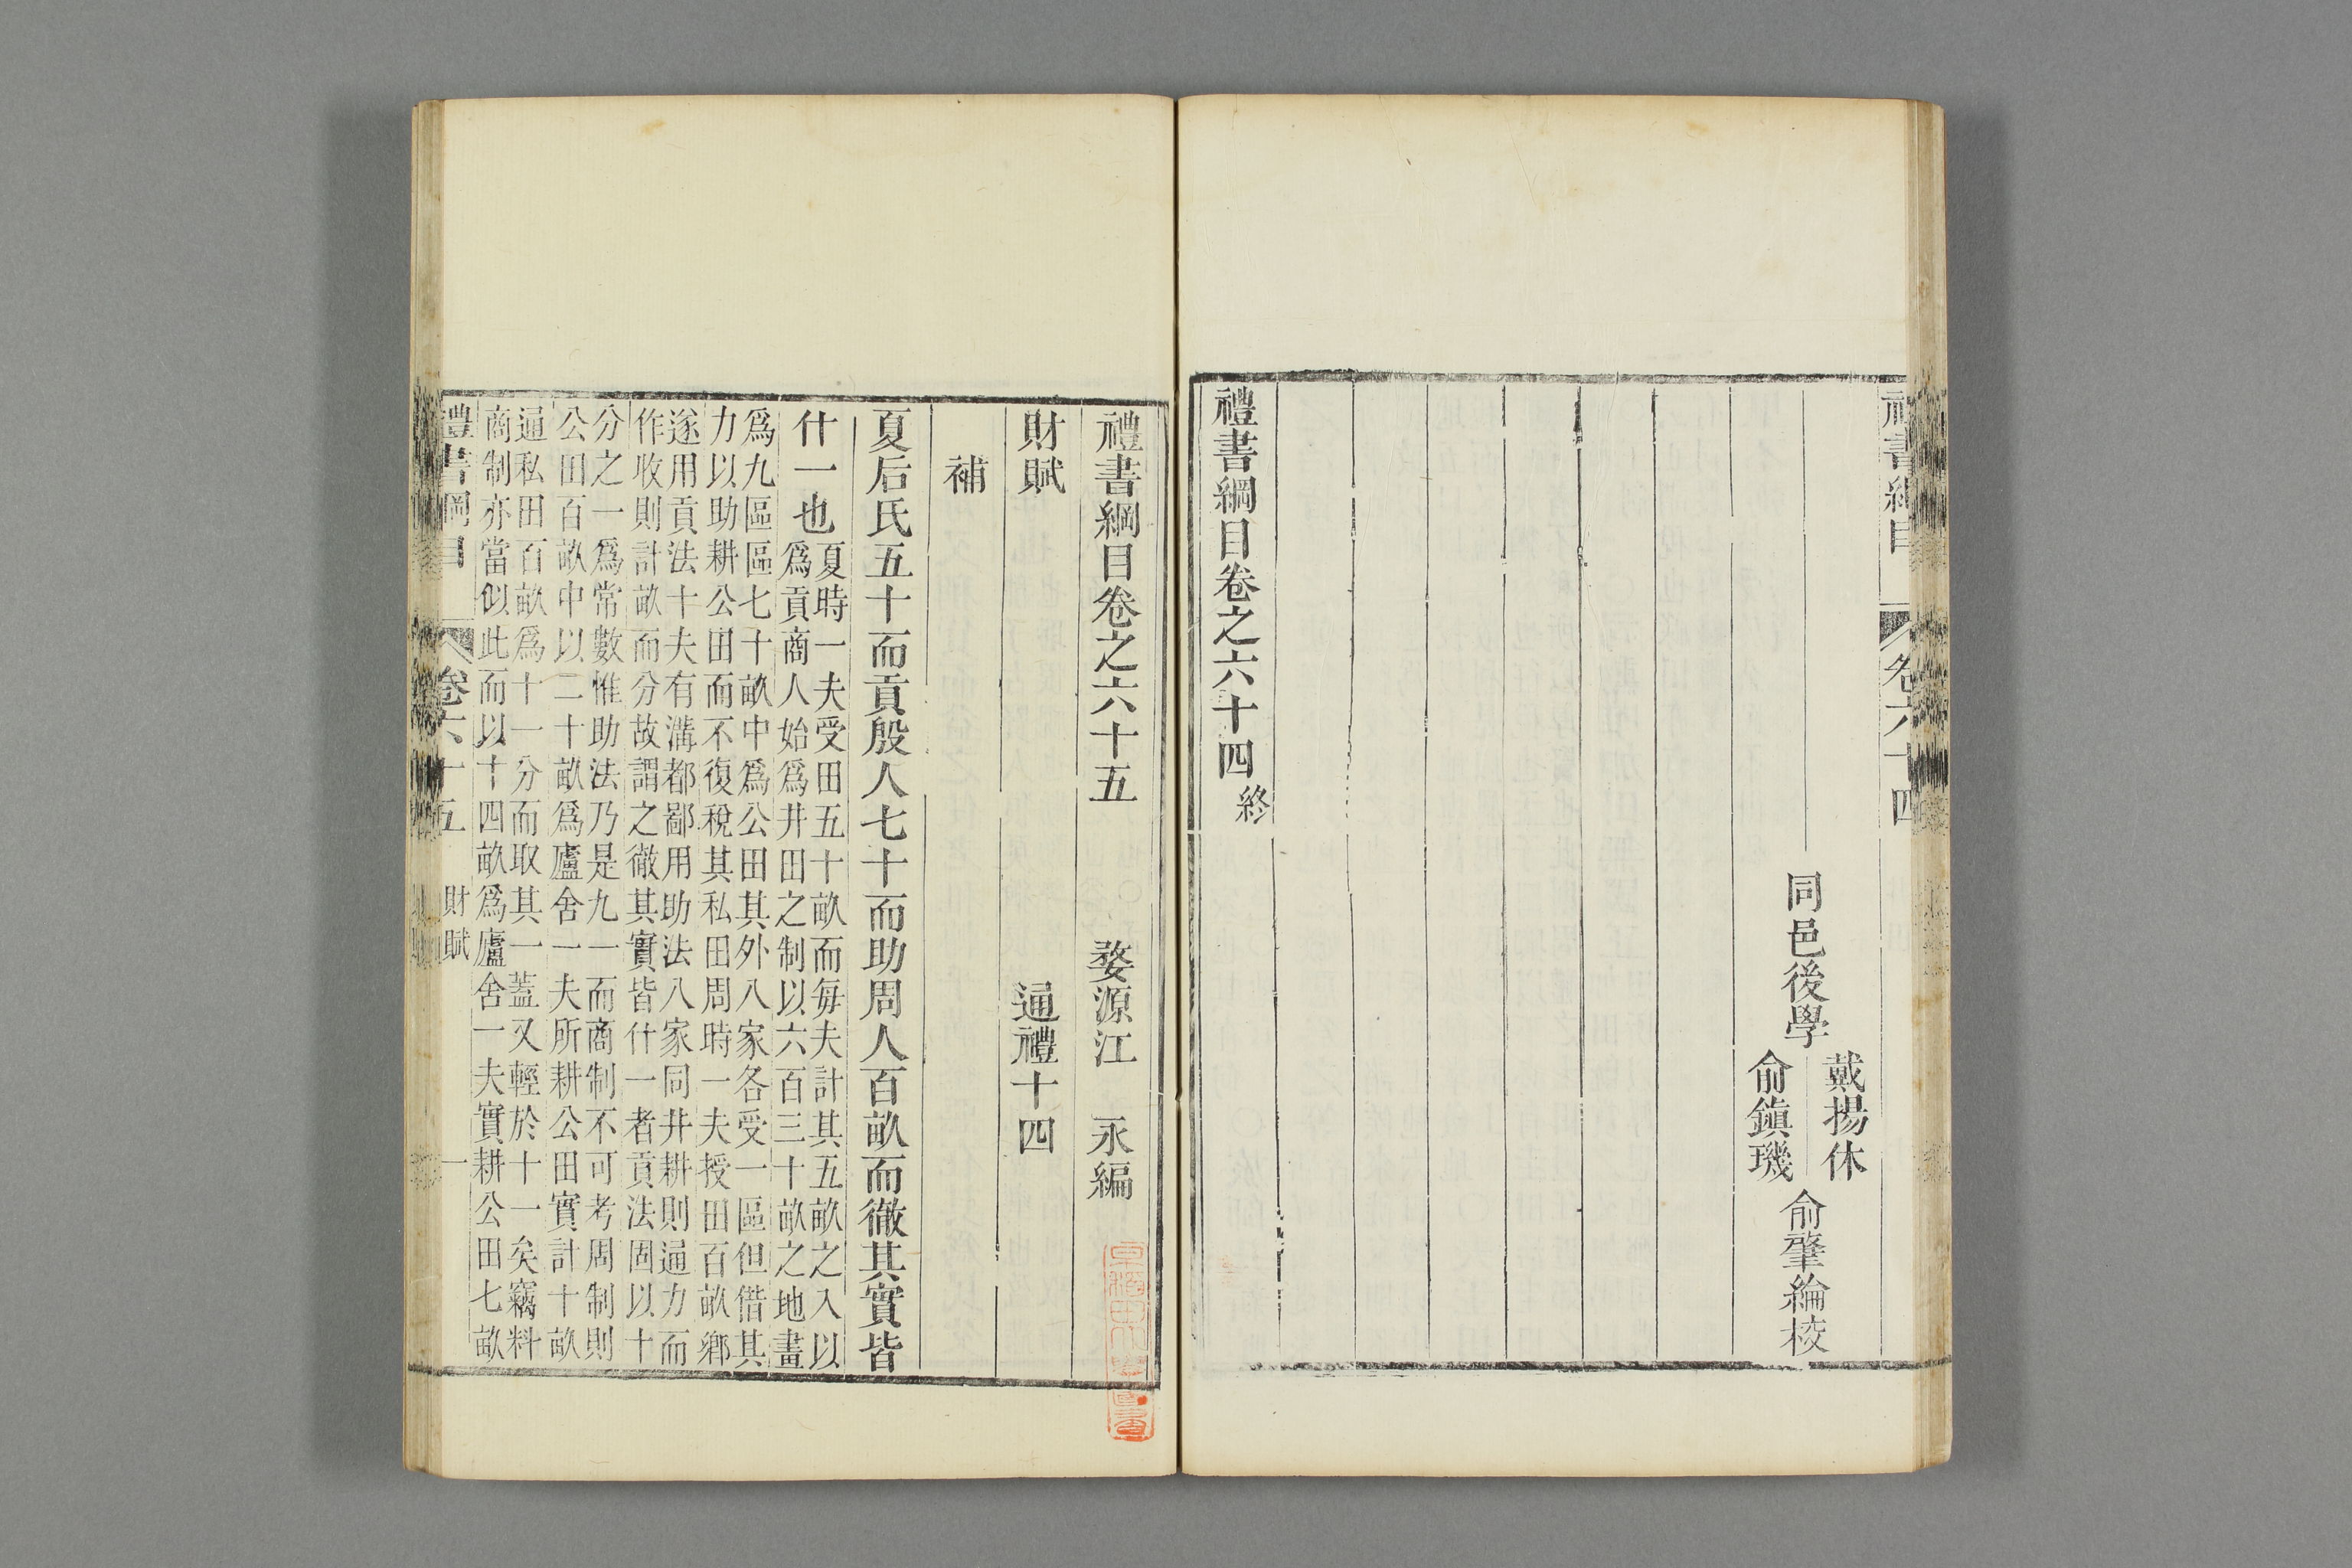 禮書綱目
卷六十四
同邑後學
戴揚休
俞鎮璣
俞肇綸校
禮書綱目卷之六十四終
禮書綱目卷之六十五
婺源江 永編
財賦
通禮十四
補
夏后氏五十而貢殷人七十而助周人百畝而徹其實皆
什一也
夏時一夫受田五十畝而每夫計其五畝之入以
爲貢商人始爲井田之制以六百三十畝之地畫
爲九區區七十畝中爲公田其外八家各受一區但借其
力以助耕公田而不復稅其私田周時一夫授田百畝鄉
遂用貢法十夫有溝都鄙用助法八家同井耕則通力而
作收則計畝而分故謂之徹其實皆什一者貢法固以十
分之一爲常數惟助法乃是九一而商制不可考周制則
公田百畝中以二十畝爲廬舍一夫所耕公田實計十畝
通私田百畝爲十一分而取其一蓋又輕於十一矣竊料
商制亦當似此而以十四畝爲廬舍一夫實耕公田七畝
禮書綱目
卷六十五
財賦
一